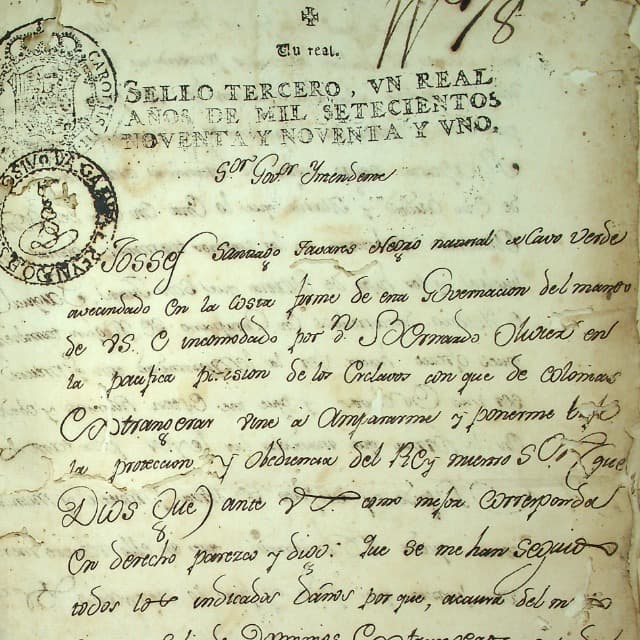 Un real.
SELLO TERCERO, VN REAL
AÑOS DE MIL SETECIENTOS
NOVENTA Y NOVENTA Y VNO.
S.or Gov.or Yntendente
Jossef Santiago Tavares Negro natural de Cavo Verde
avecindado en la costa firme de esta Governacion del mando
de VS. e incomodado por D.n Bernardo Olivier en
la pacifica posesion de los Esclavos con que de colonias
Extrangeras vine a Ampararme y ponerme
la proteccion y obediencia del Rey nuestro S.or (que
Dios Gue) ante VS. como mejor corresponda
en derecho parezco y digo: Que se me han seguido
todos los indicados daños por que, a causa del